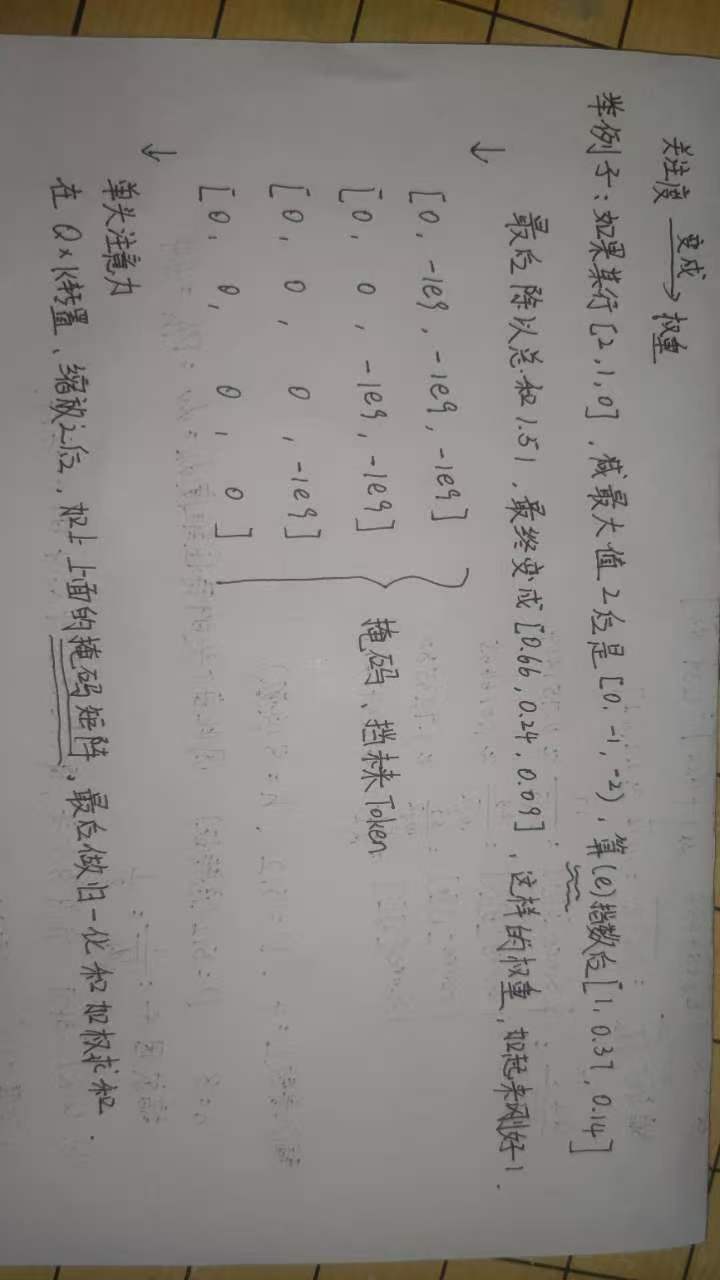 关注度 变成→ 权重
举例子:如果某行[2,1,0],减最大值2后是[0,-1,-2),算(e)指数后[1,0.37,0.14]
最后除以总和1.51,最终变成[0.66,0.24,0.09],这样的权重,加起来刚好1.
↓
[0, -1e9, -1e9, -1e9]
[0, 0, -1e9, -1e9]
[0, 0, 0, -1e9]
[0, 0, 0, 0]
掩码、挡未来Token
↓
单头注意力
在Q×K转置、缩放之后,加上上面的掩码矩阵,最后做归一化和加权求和.